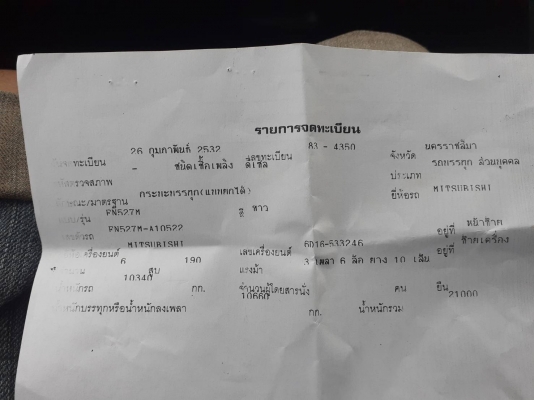 รายการจดทะเบียน
26 กุมภาพันธ์ 2532 เลขทะเบียน 83 - 4350 จังหวัด นครราชสีมา
ทะเบียน - ชนิดเชื้อเพลิง ดีเซล ประเภท รถบรรทุก ส่วนบุคคล
ตรวจสภาพ
/มาตรฐาน กระบะบรรทุก(แบบยกได้) ยี่ห้อรถ MITSUBISHI
รุ่น FN527M สี ขาว
FN527M-A10522 อยู่ที่ หน้าซ้าย
เครื่องยนต์ MITSUBISHI เลขเครื่องยนต์ 6D16-533246 อยู่ที่ ซ้ายเครื่อง
6 สูบ 190 แรงม้า 3 เพลา 6 ล้อ ยาง 10 เส้น
10340 กก. จำนวนผู้โดยสารนั่ง คน ยืน
น้ำหนักบรรทุกหรือน้ำหนักลงเพลา 10660 กก. น้ำหนักรวม 21000